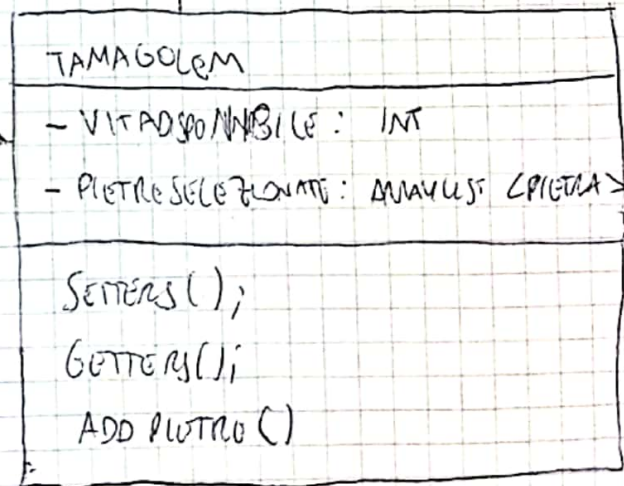 TAMAGOLEM
- VITADISPONIBILE : INT
- PIETRESELEZIONATE : ARRAYLIST <PIETRA>
SETTERS();
GETTERS();
ADD PIETRE()